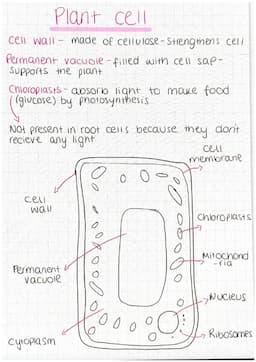 Plant cell
cell wall - made of cellulose - strengthens cell
Permanent vacuole - filled with cell sap -
supports the plant
Chloroplasts - absorb light to make food
(glucose) by photosynthesis
Not present in root cells because they don't
recieve any light
cell
membrane
cell
wall
Chloroplasts
Mitochond
-ria
Permanent
vacuole
Nucleus
Ribosomes
cytoplasm